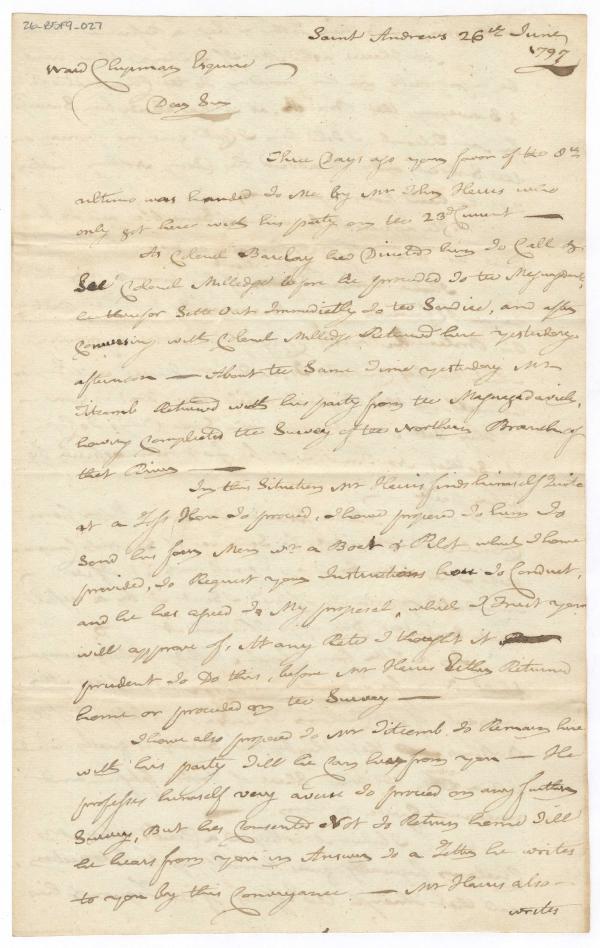 26-B5F9-027
Saint Andrews 26th June
1797
Ward Chipman Esquire
Dear Sir
Three Days ago your favor of the 8th
ultimo was handed to Me by Mr John Harris who
only got here with his party on the 23d Current —
As Colonel Barclay has Directed him to Call &
See Colonel Milledge before he proceeded to the Magaguadavic,
he therefor Sette Out Immedietly to the Sandise, and after
Conversing with Colonel Milledge Returned here yesterday
afternoon — About the Same Time yesterday Mr
Titcomb Returned with his party from the Magaguadavick,
having Completed the Survey of the Northern Branch of
that River —
In this Situation Mr Harris finds himself Quite
at a Loss How to proceed, I have proposed to him to
Send his four Men wt a Boat & Pilot which I have
provided, to Request your Instructions how to Conduct,
and he has agreed to My proposal, which I Trust you
will approve of, At any Rate I thought it
prudent to Do this, before Mr Harris Either Returned
home or proceeded on the Survey —
I have also proposed to Mr Titcomb to Remain here
with his party Till he Can hear from you — He
professes himself very averse to proceed on any further
Survey, But has Consented Not to Return home Till
he hears from you in Answer to a Letter he writes
to you by this Conveyance — Mr Harris also
writes